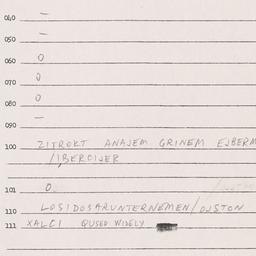 040 —
050 —
060 0
070 0
080 0
090 —
100 ZITROKT ANAJEM GRINEM EJBERM
/IBERCIJER
101 0
110 LOSIDOSARUNTERNEMEN/OJSTON
111 XALCI QUSED WIDELY